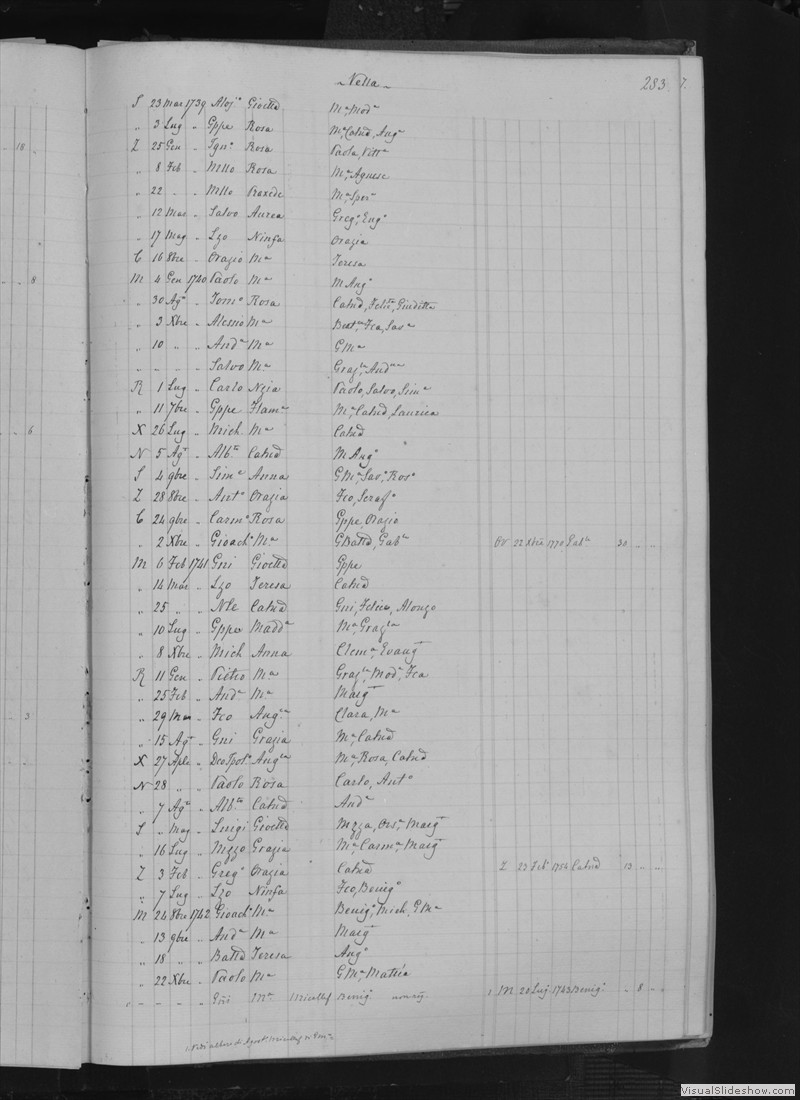 Nella 283 7.
S 23 Mar 1739 Aloj° Gioetta Mª, Modª
" 3 Lug " Gppe Rosa Mª, Catnd, Angª
Z 25 Gen " Ign° Rosa Paola, Vittª
18
" 8 Feb " Mello Rosa Mª, Agnese
" 22 " " Mello Praxede Mª, Sperª
" 12 Mar " Salvo Aurea Greg°, Eug°
" 17 Mag " Lzo Ninfa Orazia
C 16 8bre " Orazio Mª Teresa
M 4 Gen 1740 Paolo Mª M Angª
8
" 30 Ag° " Tom° Rosa Catnd, Felice, Giuditta
" 3 Xbre " Alessio Mª Fca, Savª
" 10 " " Andª Mª GMª
" " " " Salvo Mª Graz, Andna
R 1 Lug " Carlo Nzia Paolo, Salvo, Simª
" 11 7bre " Gppe Flamª Mª, Catnd, Laurica
6
X 26 Lug " Mich Mª Catnd
N 5 Ag° " Albto Catnd M Angª
S 4 9bre " Simª Anna GMª, Sav°, Rosª
Z 28 8bre " Ant° Orazia Fco, Seraf°
C 24 9bre " Carm° Rosa Gppe, Orazio
" 2 Xbre " Gioach° Mª GBatta, Gabª 22 Xbre 1770 Gabª 30 " "
M 6 Feb 1741 Gni Gioetta Gppe
" 14 Mar " Lzo Teresa Catnd
" 25 " " Nle Catnd Gni, Felice, Alonzo
" 10 Lug " Gppe Maddª Mª, Grazna
" 8 Xbre " Mich Anna Clemª, Evangta
R 11 Gen " Pietro Mª Graz, Modª, Fca
" 25 Feb " Andª Mª Margta
3
" 29 Mar " Fco Angna Clara, Mª
" 15 Ag° " Gni Grazia Mª, Catnd
X 27 Aple " Angna Mª, Rosa, Catnd
N 28 " " Paolo Rosa Carlo, Ant°
" 7 Ag° " Albto Catnd Andª
S " Mag " Luigi Gioetta Mzza, Orsª, Margta
" 16 Lug " Nzzo Grazia Mª, Carmª, Margta
Z 3 Feb " Greg° Orazia Catnd Z 23 Feb 1754 Catnd 13 " "
" 7 Lug " Lzo Ninfa Fco, Benig°
M 24 8bre 1742 Gioach° Mª Benig°, Mich, GMª
" 13 9bre " Andª Mª Margta
" 18 " " Batta Teresa Ang°
" 22 Xbre " Paolo Mª GMª, Mattia
" " " " Gni Mª Micallef Benigª 1 M 20 Lug 1743 Benigª " 8 " "
VisualSlideshow.com